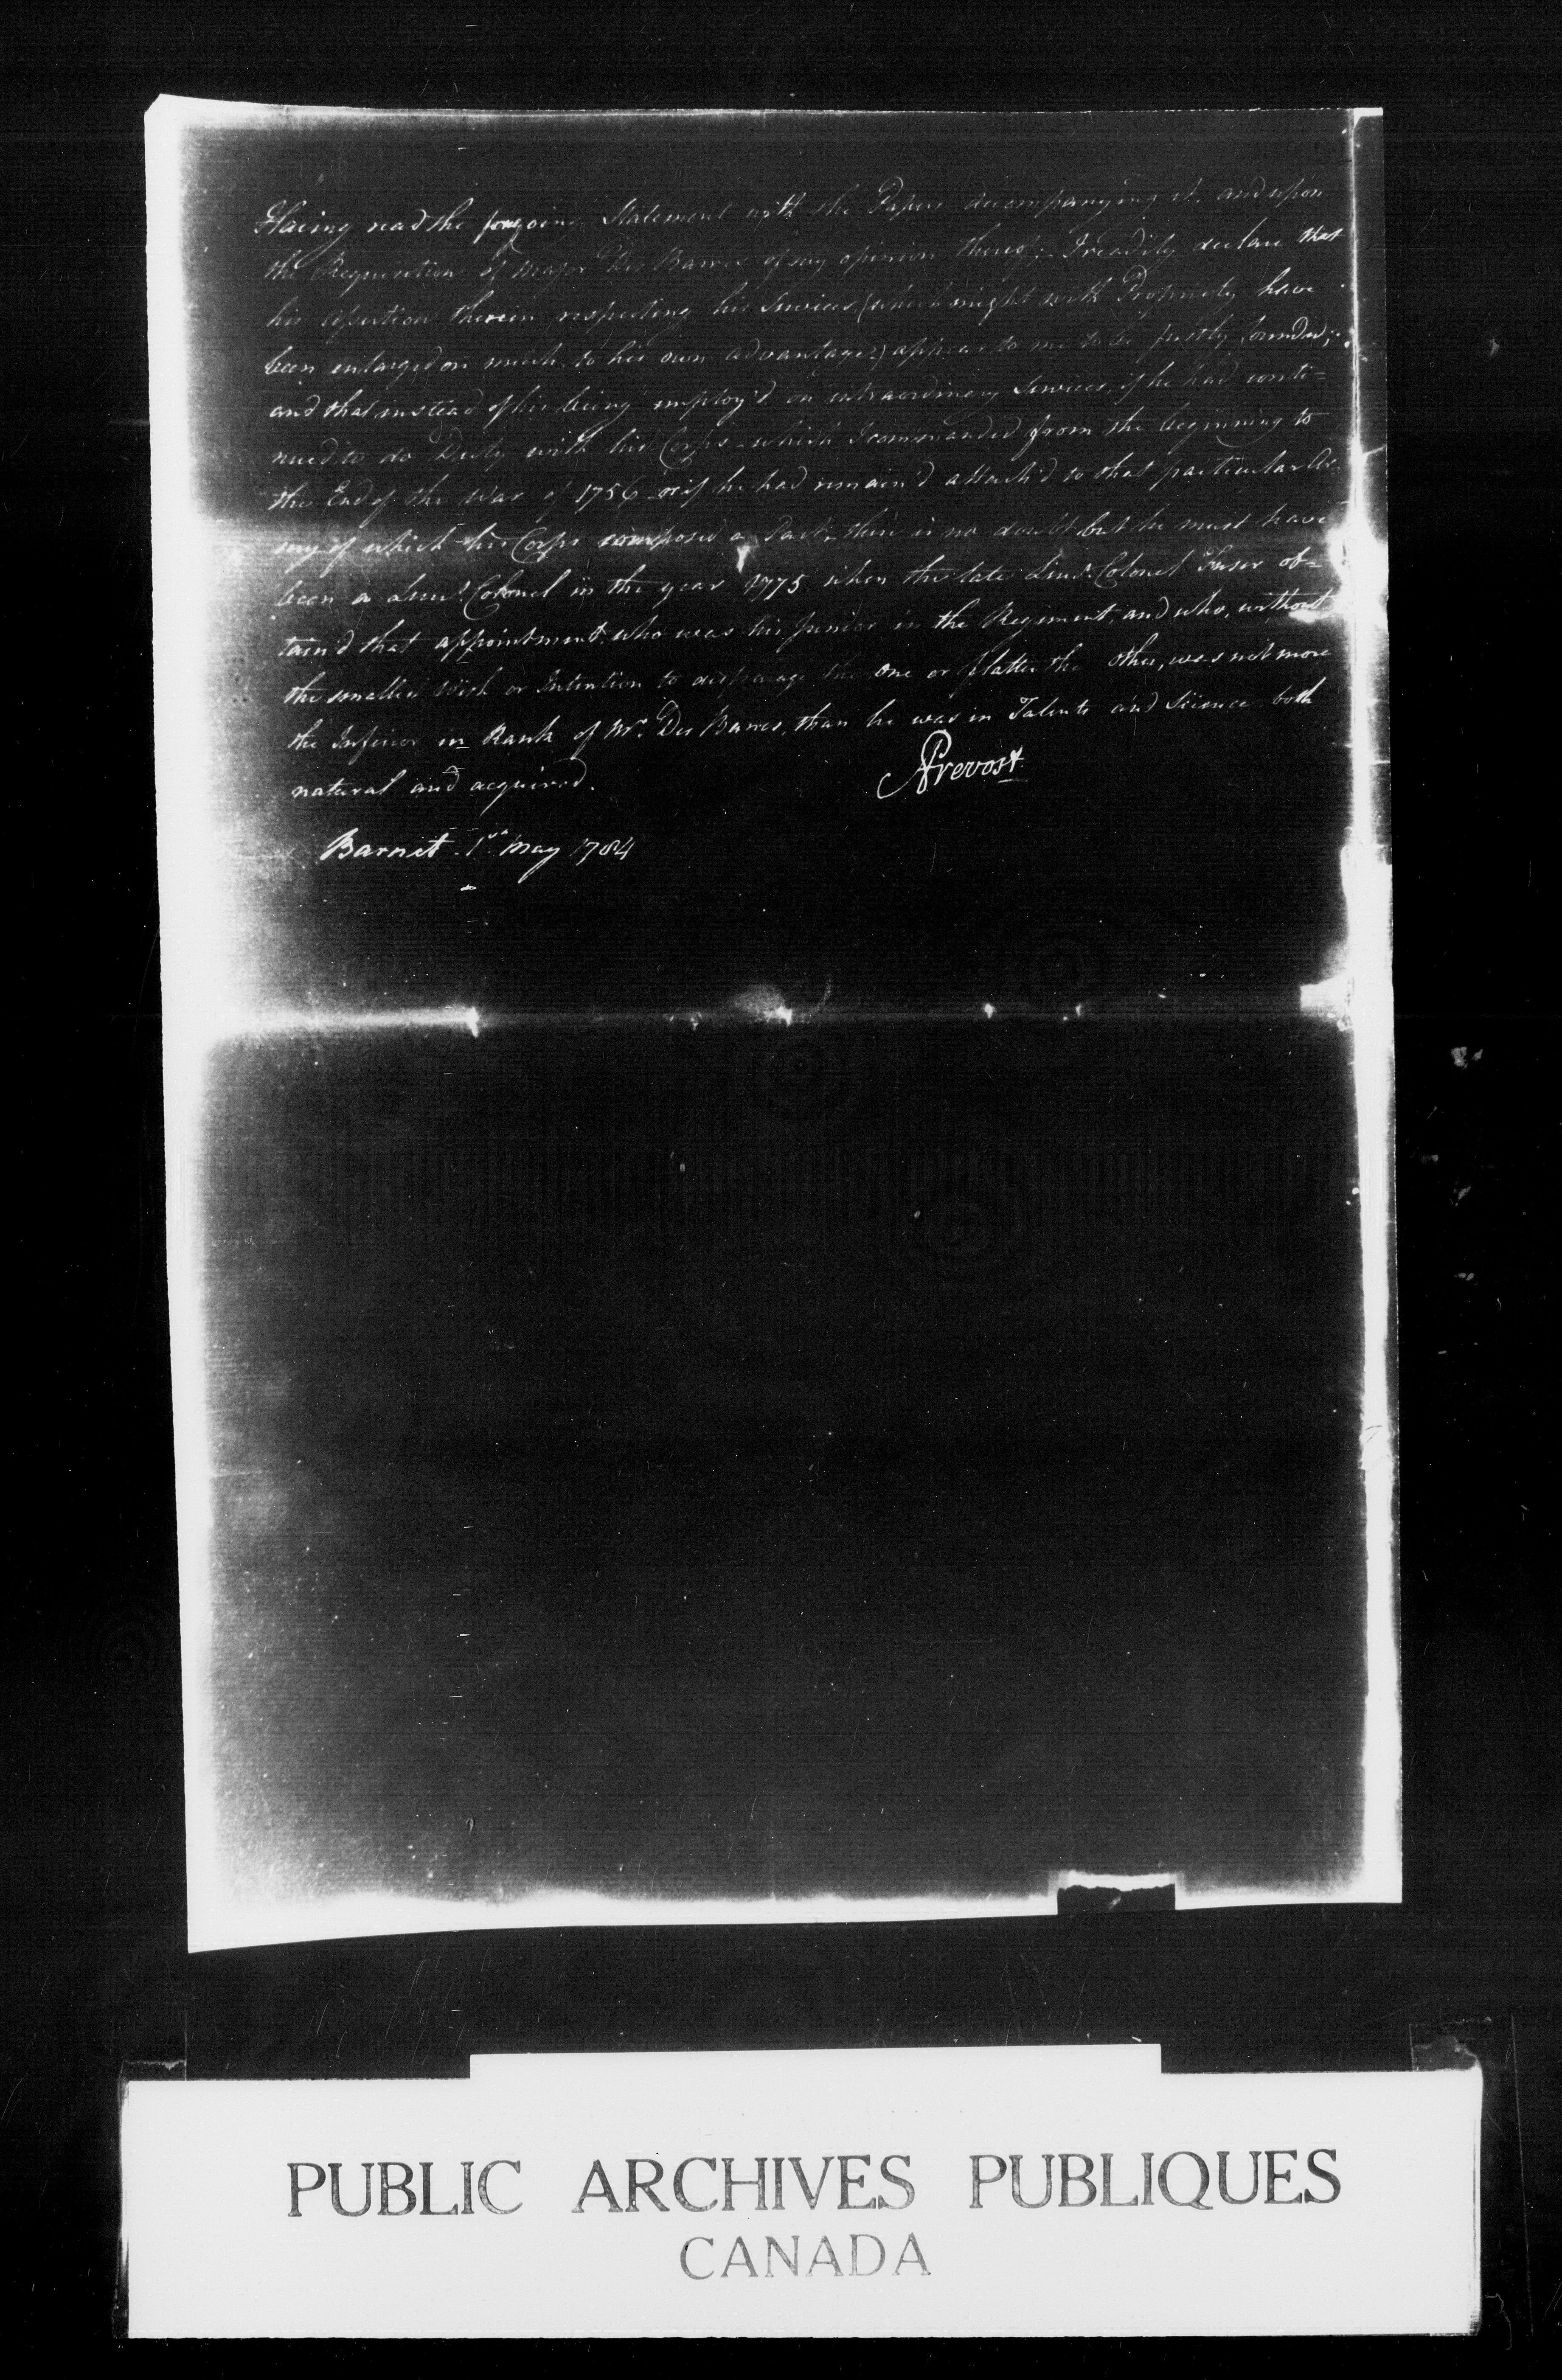 Having read the foregoing Statement with the Papers accompanying it, and upon
the Requisition of Major Des Barres of my opinion thereof; I readily declare that
his assertion therein respecting his Services (which might with Propriety have
been enlarged on much to his own advantage) appear to me to be justly founded;
and that instead of his being employ'd on extraordinary Services, if he had conti=
nued to do Duty with his Corps - which I commanded from the beginning to
the End of the War of 1756 or if he had remain'd attach'd to that particular Ar=
my of which his Corps composed a Part - there is no doubt but he must have
been a Lieut. Colonel in the year 1775 when the late Lieut. Colonel Fuser ob=
tain'd that appointment who was his Junior in the Regiment, and who, without
the smallest Wish or Intention to disparage the one or flatter the other, was not more
the Inferior in Rank of Mr. Des Barres, than he was in Talents and Science both
natural and acquired.
A Prevost
Barnet 1st May 1784
PUBLIC ARCHIVES PUBLIQUES
CANADA